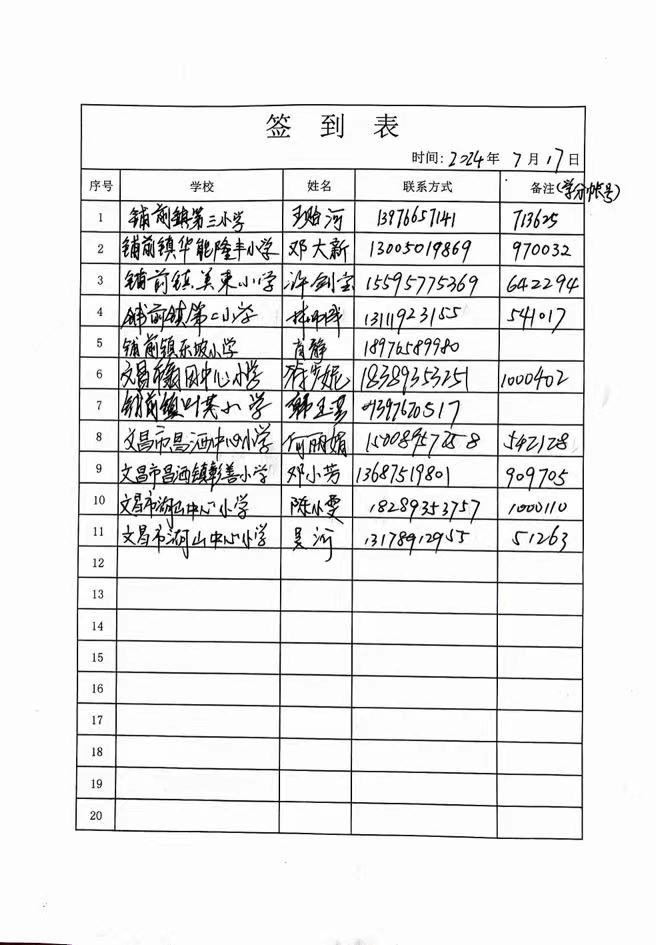 签 到 表
时间: 2024年 7月17日
序号 学校 姓名 联系方式 备注(学分帐号)
1 铺前镇第三小学 河 13976657141 713625
2 铺前镇华能隆丰小学 邓大新 13005019869 970032
3 铺前镇美東小学 许剑宝 15595775369 642294
4 铺前镇第二小学 林 13111923155 541017
5 铺前镇东坡小学 肖静 18976589980
6 文昌市 田中心小学 18389353251 1000402
7 铺前镇 小学 13976 70517
8 文昌市昌洒中心小学 何丽娟 542128
9 文昌市昌洒镇彰善小学 邓小芳 13687519801 909705
10 文昌市湖山中心小学 陈小雯 18289353757 1000110
11 文昌市湖山中心小学 吴河 13178912955 51263
12
13
14
15
16
17
18
19
20